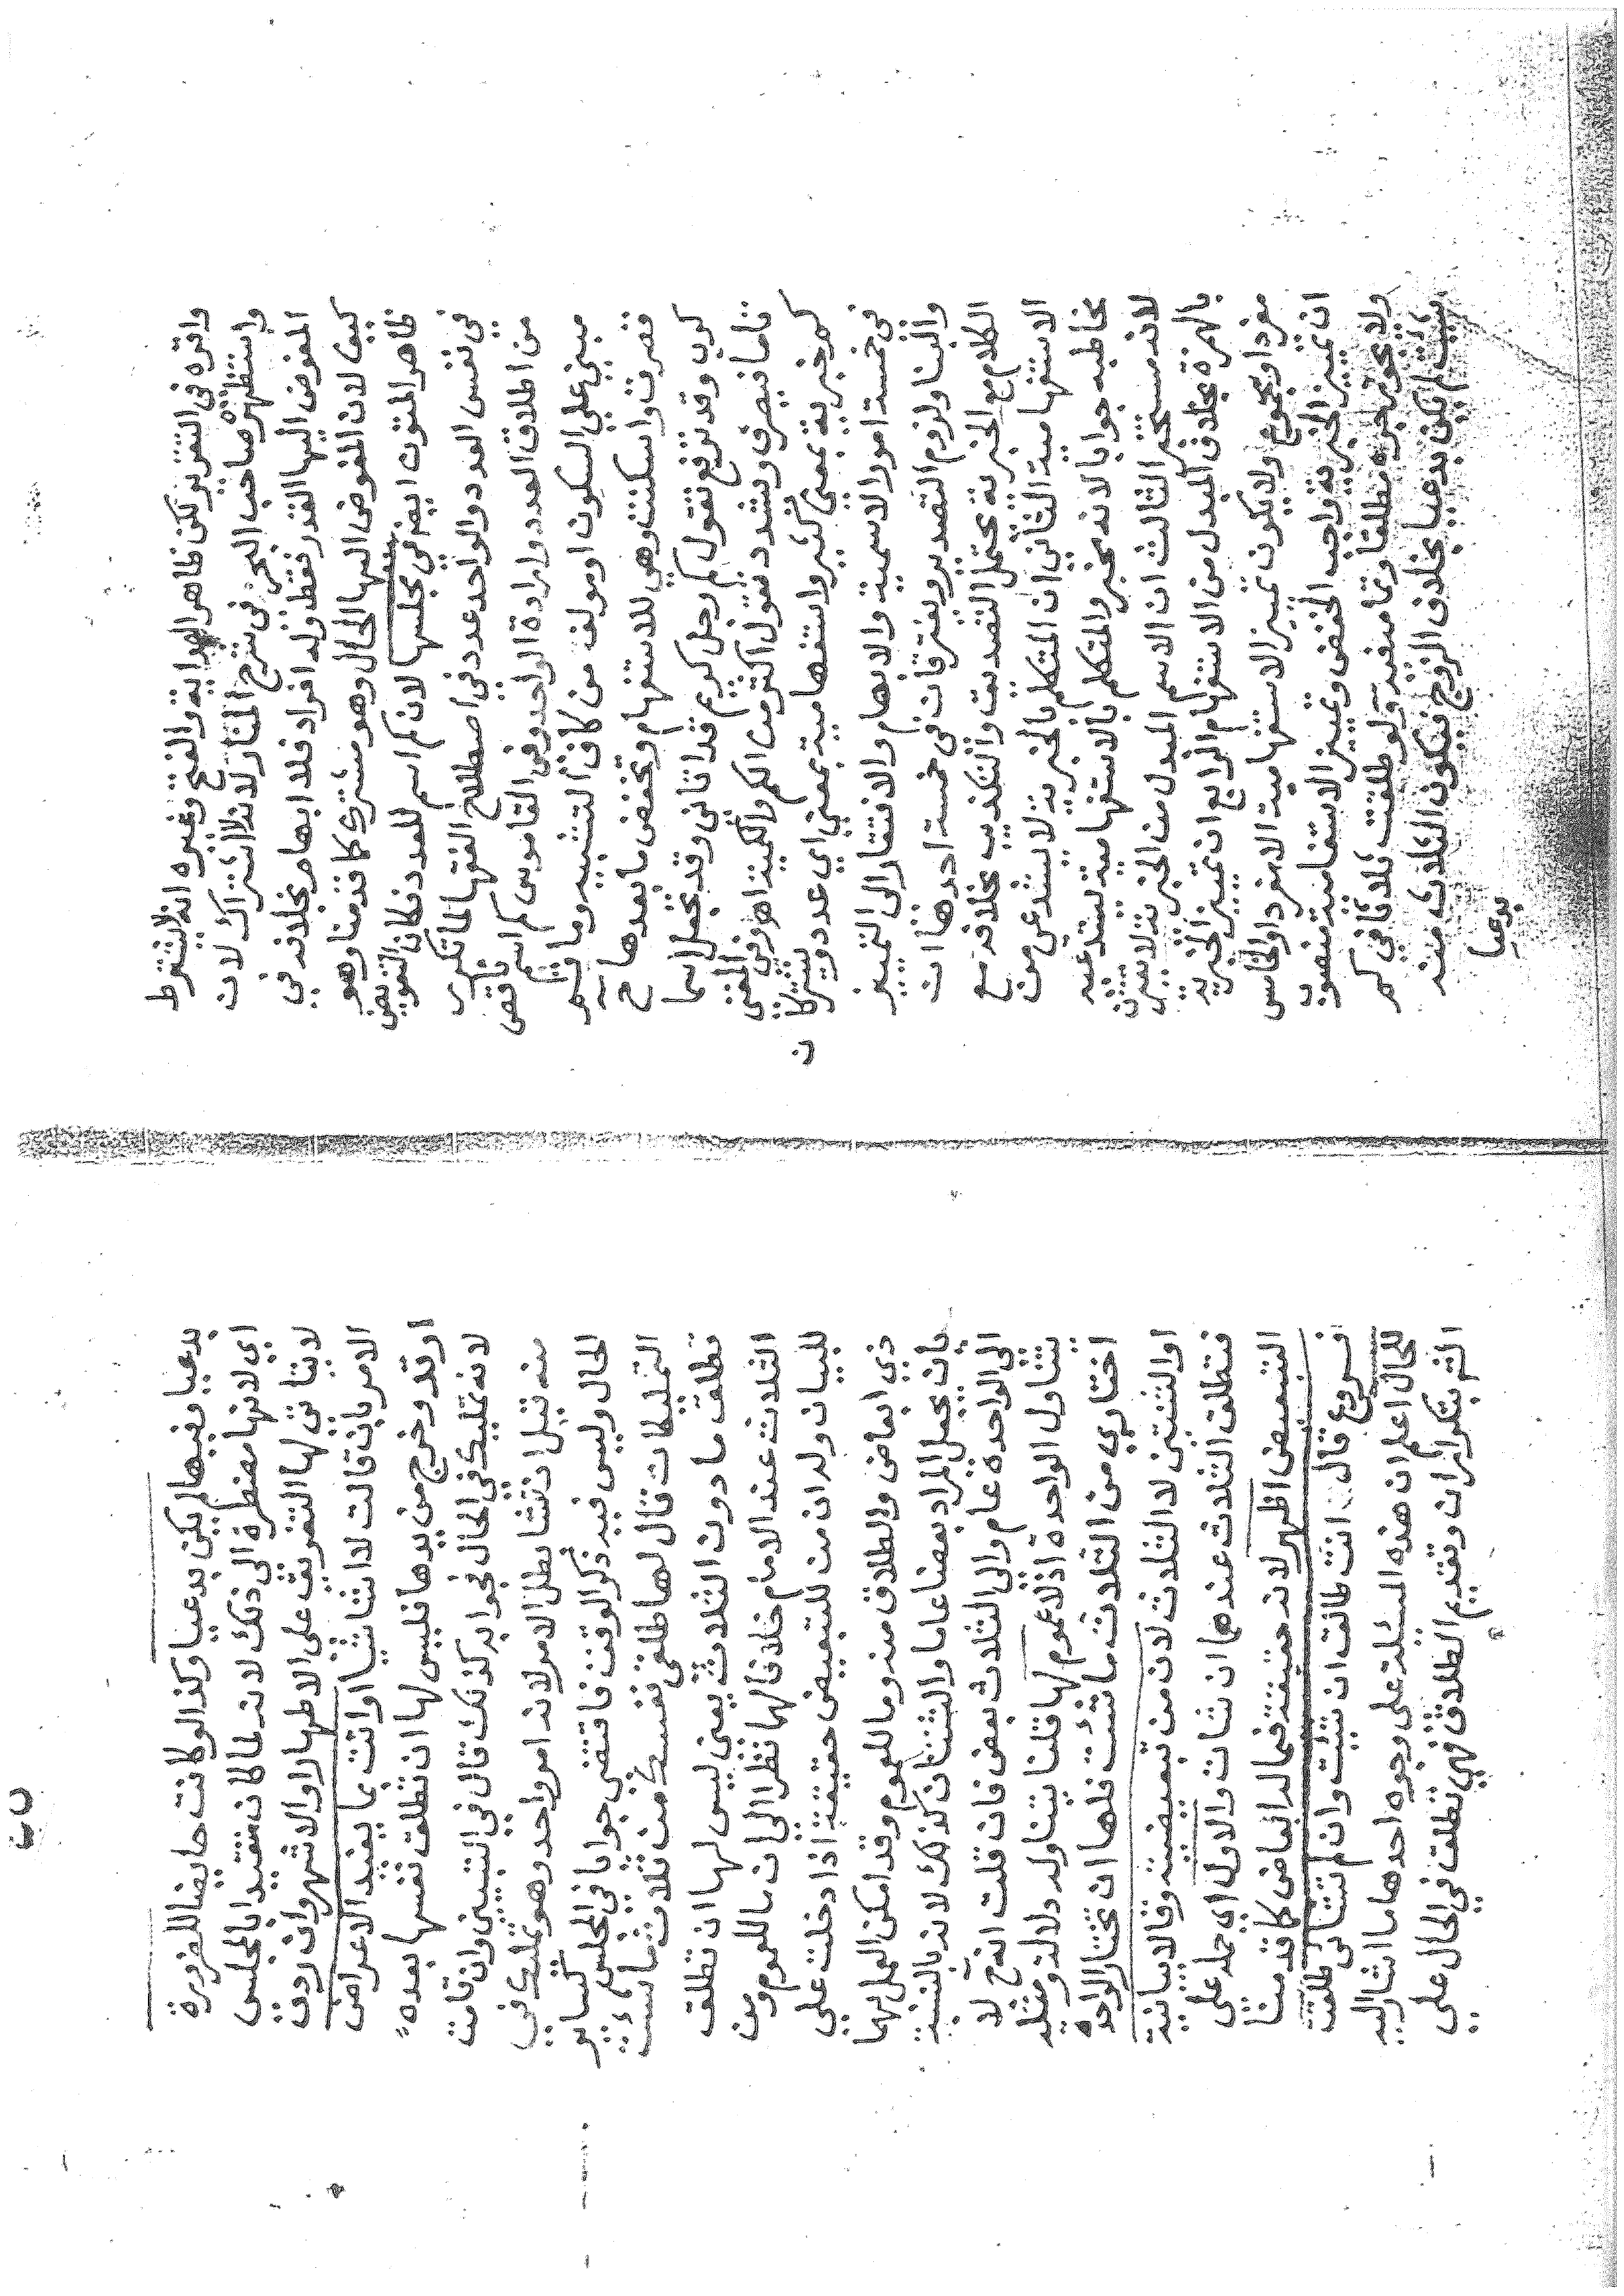 واقره في التقرير لكن ظاهر الهداية والفتح وغيره انه لا يشترط
واستظهره صاحب البحر في شرح المنار لانه لا اشتراك لان
المفوض اليها القدر فقط وله افراد فلا ابهام بخلافه في
كيف لان المفوض اليها الحال وهو مشترك كما قدمنا وهو
ظاهر المتون ايضر في مجلسها لان كم اسم للعدد فكان التفويض
في نفس العدد والواحد عدد في اصطلاح الفقها لما تكرر
من اطلاق العدد وارادة الواحد وفي القاموس كم اسم ناقص
مبني علي السكون او مولف من كاف التشبيه وما ثم
قصرت واسكنت وهي للاستفهام وتخفض ما بعدها ح
كرب وقد ترفع تقول كم رجل كريم قد اتاني وقد تجعل اسما
تاما فيصرف ويشدد تقول اكثر من الكم والكمية اهـ وفي المغني
كم خبرية بمعني كثير واستفهامية بمعني اي عدد ويشتركان
في خمسة امور الاسمية والابهام والافتقار الى التمييز
والبنا ولزوم التصدير ويفترقان في خمسة احدها ان
الكلام مع الخبرية محتمل التصديق والتكذيب بخلافه مع
الاستفهامية الثاني ان المتكلم بالخبرية لا يستدعي من
مخاطبه جوابا لانه مخبر والمتكلم بالاستفهامية يستدعيه
لانه مستخبر الثالث ان الاسم المبدل من الخبرية لا يقترن
بالهمزة بخلاف المبدل من الاستفهام الرابع ان تمييز الخبرية
مفرد او مجموع ولا يكون تمييز الاستفهامية الا مفردا والخامس
ان تمييز الخبرية واجب الخفض وتمييز الاستفهامية منصوب
ولا يجوز جره مطلقا وتمامه فيه ولو طلقت ثلاثا في كم
شيت لم يكن بدعيا بخلاف الزوج فيكون الثلاث منه
بدعيا
بدعيا وفيها لم يكن بدعيا وكذا لو كانت حايضا للضرورة
اي لانها مضطرة الى ذلك لانه لما كان مقيدا بالمجلس
لا يتاتى لها التفريق على الاطهار او الاشهر وان ردت
الامر بان قالت لا اشا شيا او اتت بما يفيد الاعراض
ارتد وخرج من يدها فليس لها ان تطلق نفسها بعده
لانه تمليك في الحال فجوابه كذلك قال في التبيين وان قامت
منه قبل ان تشا بطل الامر لانه امر واحد وهو تمليك في
الحال وليس فيه ذكر الوقت فاقتضى جوابا في المجلس كساير
التمليكات قال لها طلقي نفسك من ثلاث ما شيت
تطلق ما دون الثلاث يعني ليس لها ان تطلق
الثلاث عند الامام خلافا لهما نظرا الى ان ما للعموم ومن
للبيان وله ان من للتبعيض حقيقة اذا دخلت علي
ذي ابعاض والطلاق منه وما للعموم وقد امكن العمل بهما
بان يجعل المراد بعضا عاما والثنتان كذلك لانه بالنسبة
الى الواحدة عام والى الثلاث بعض فان قلت انه ح لا
يتناول الواحدة اذ لا عموم لها قلنا يتناوله دلالة ومثله
اختاري من الثلاث ما شئت فلها ان تختار الواحدة
او الثنتين لا الثلاث لان من تبعيضية وقالا بيانية
فتطلق الثلاث عندهما ان شات والاول اي حمله على
التبعيض اظهر لانه حقيقة فيما له ابعاض كما قدمنا
فروع قال انت طالق ان شيت وان لم تشائي طلقت
للحال اعلم ان هذه المسئلة على وجوه احدها ما اشار اليه
الشم بتكرار ان وتقديم الطلاق فهي تطلق في الحال على